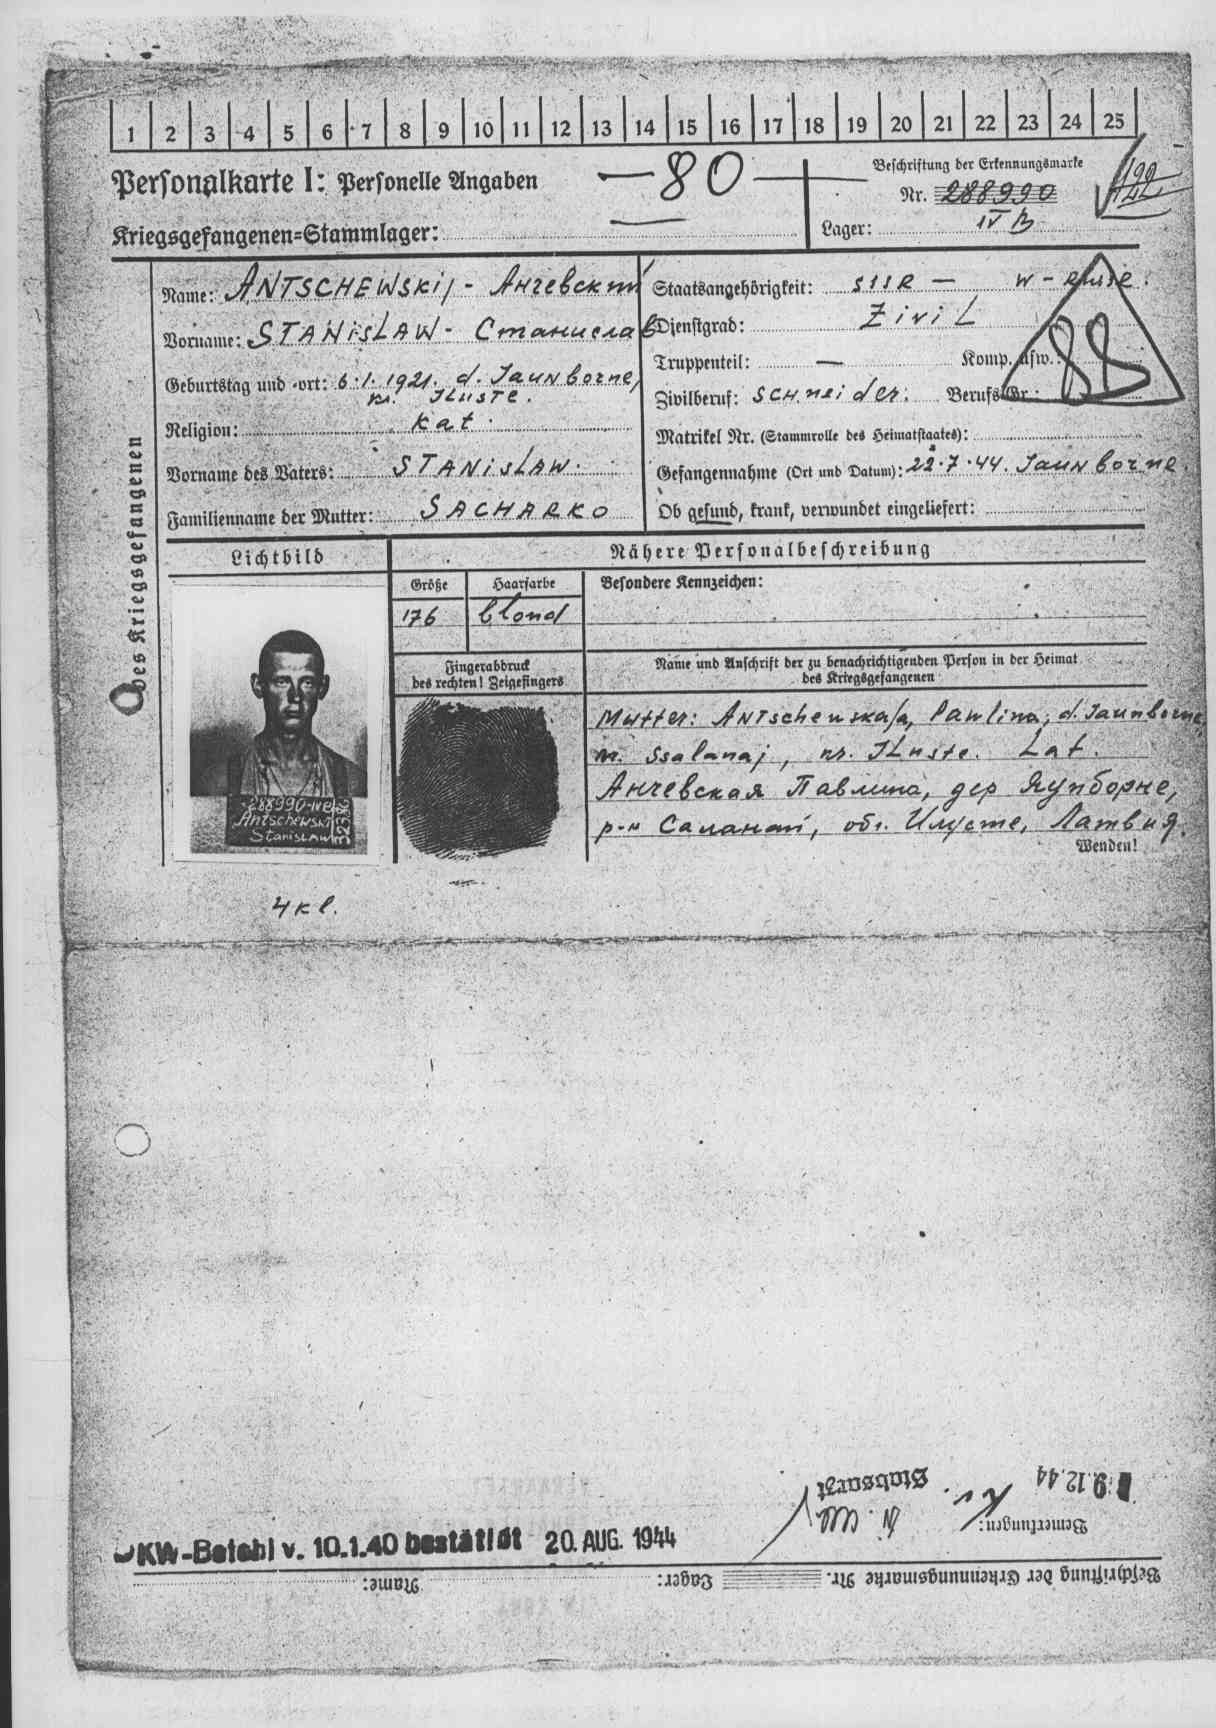 1 2 3 4 5 6 7 8 9 10 11 12 13 14 15 16 17 18 19 20 21 22 23 24 25
Personalkarte I: Personelle Angaben
— 80 —
Beschriftung der Erkennungsmarke
Nr. 288990
Kriegsgefangenen=Stammlager:
Lager: IV B
des Kriegsgefangenen
Name: ANTSCHEWSKij - Анчевский
Vorname: STANiSLAW - Станислав
Geburtstag und -ort: 6.1.1921. d. Jaunborne,
kr. Iluste.
Religion: kat.
Vorname des Vaters: STANiSLAW.
Familienname der Mutter: SACHARKO
Staatsangehörigkeit: SSSR — W-
Dienstgrad: Zivil
Truppenteil: — Komp. usw.:
88
Zivilberuf: Schneider. Berufs-Gr.:
Matrikel Nr. (Stammrolle des Heimatstaates):
Gefangennahme (Ort und Datum): 22.7.44. Jaunborne.
Ob gesund, krank, verwundet eingeliefert:
Lichtbild
Nähere Personalbeschreibung
Größe
Haarfarbe
Besondere Kennzeichen:
176
blond
Fingerabdruck
des rechten! Zeigefingers
Name und Anschrift der zu benachrichtigenden Person in der Heimat
des Kriegsgefangenen
Mutter: Antschewskaja, Pawlina, d. Jaunborne,
Ssalanaj, kr. Iluste. Lat.
Анчевская Павлина, дер Яунборне,
р-н Саланай, обл. Илусте, Латвия.
Wenden!
288990-IVB
Antschewskij
Stanislaw
4 kl.
9.12.44
Stabsarzt
Bemerkungen:
OKW-Befehl v. 10.1.40 bestätigt 20. AUG. 1944
Beschriftung der Erkennungsmarke Nr. Lager: Name: